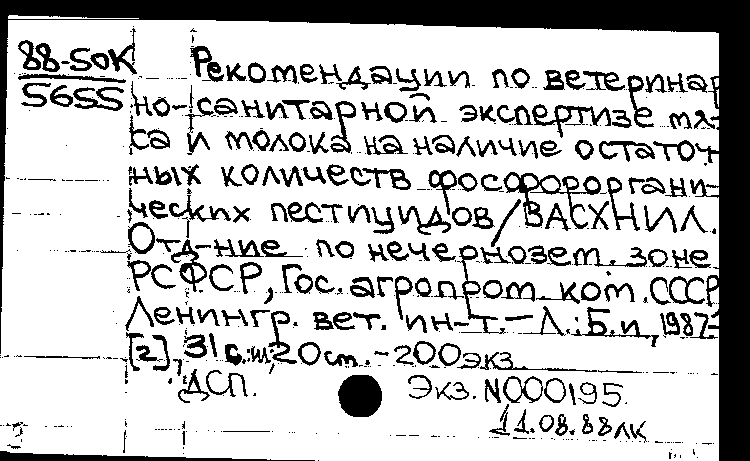 88-50К
5655
Рекомендации по ветеринар
но-санитарной экспертизе мя-
са и молока на наличие остаточ
ных количеств фосфороргани-
ческих пестицидов/ВАСХНИЛ.
Отд-ние по нечернозем. зоне
РСФСР, Гос. агропром. ком. СССР
Ленингр. вет. ин-т.-Л.:Б.и, 1987-
[2], 31 с.:ил, 20 см.-200 экз.
ДСП. Экз. N000195.
11.08.88 лк